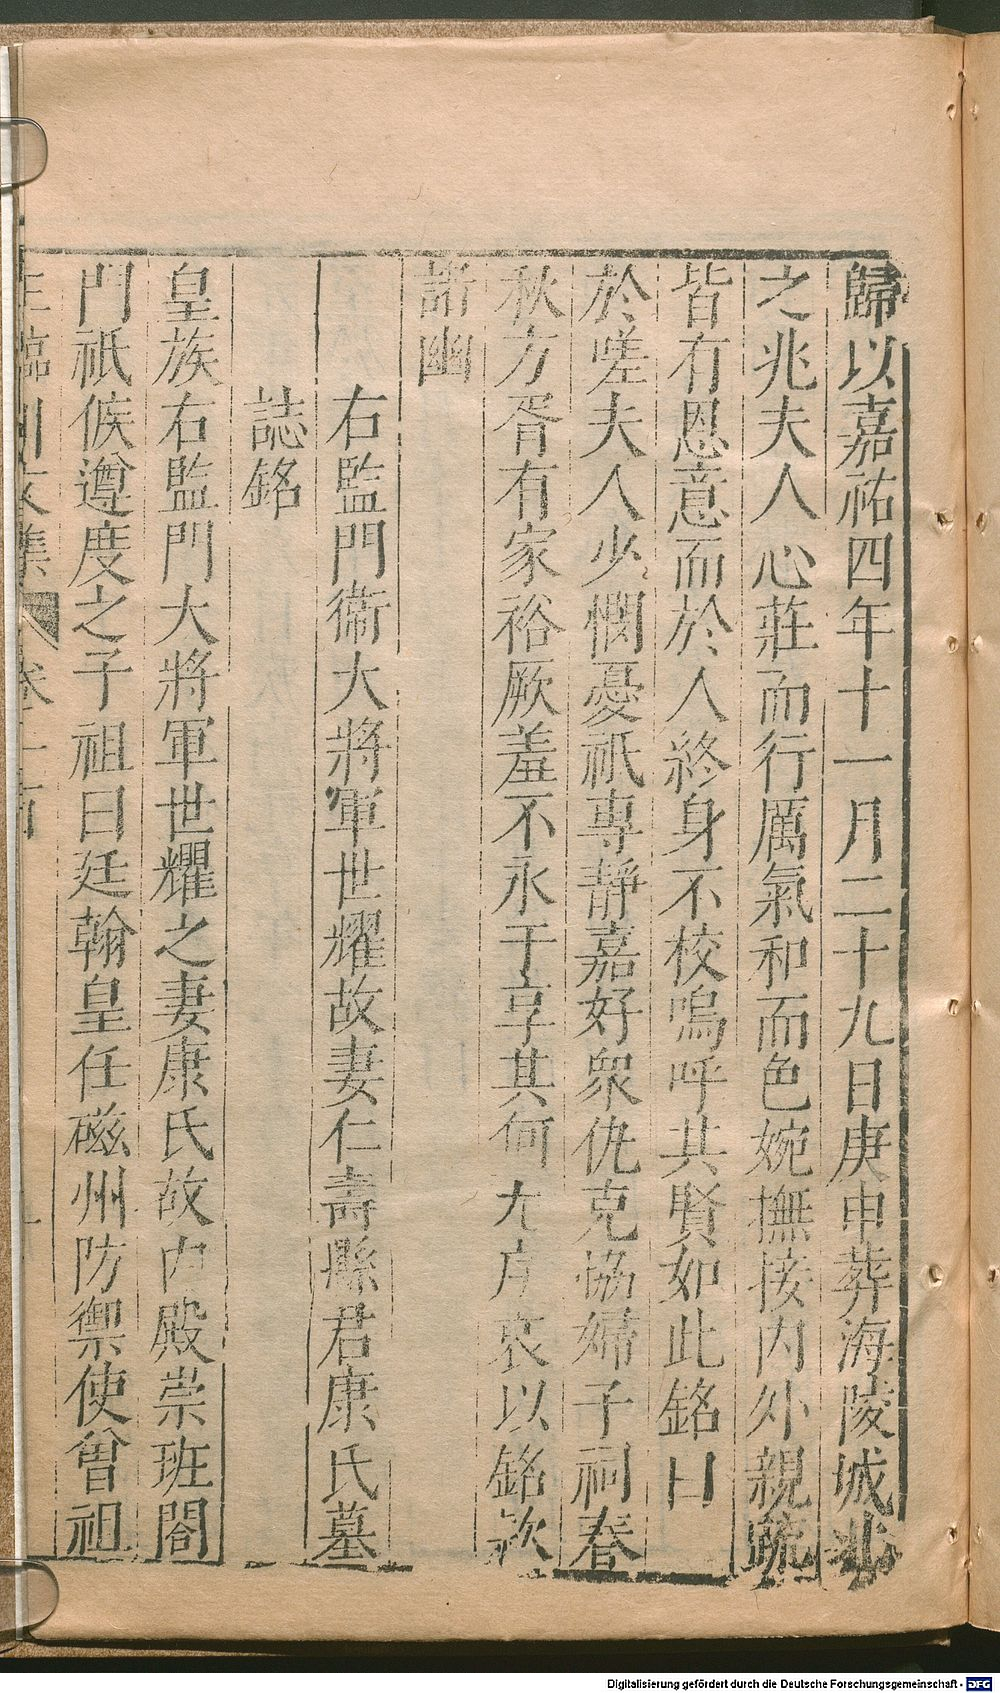 歸以嘉祐四年十一月二十九日庚申葬海陵城北
之兆夫人心莊而行厲氣和而色婉撫接内外親疏
皆有恩意而於人終身不校嗚呼其賢如此銘曰
於嗟夫人少憫憂祇專靜嘉好衆仇克恊婦子祠春
秋方胥有家裕厥羞不永于享其何尤片哀以銘
諸幽
右監門衞大將軍世耀故妻仁壽縣君康氏墓
誌銘
皇族右監門大將軍世耀之妻康氏故内殿崇班閤
門祇候遵度之子祖曰廷翰皇任磁州防禦使曾祖
王臨川文集 卷
Digitalisierung gefördert durch die Deutsche Forschungsgemeinschaft - DFG